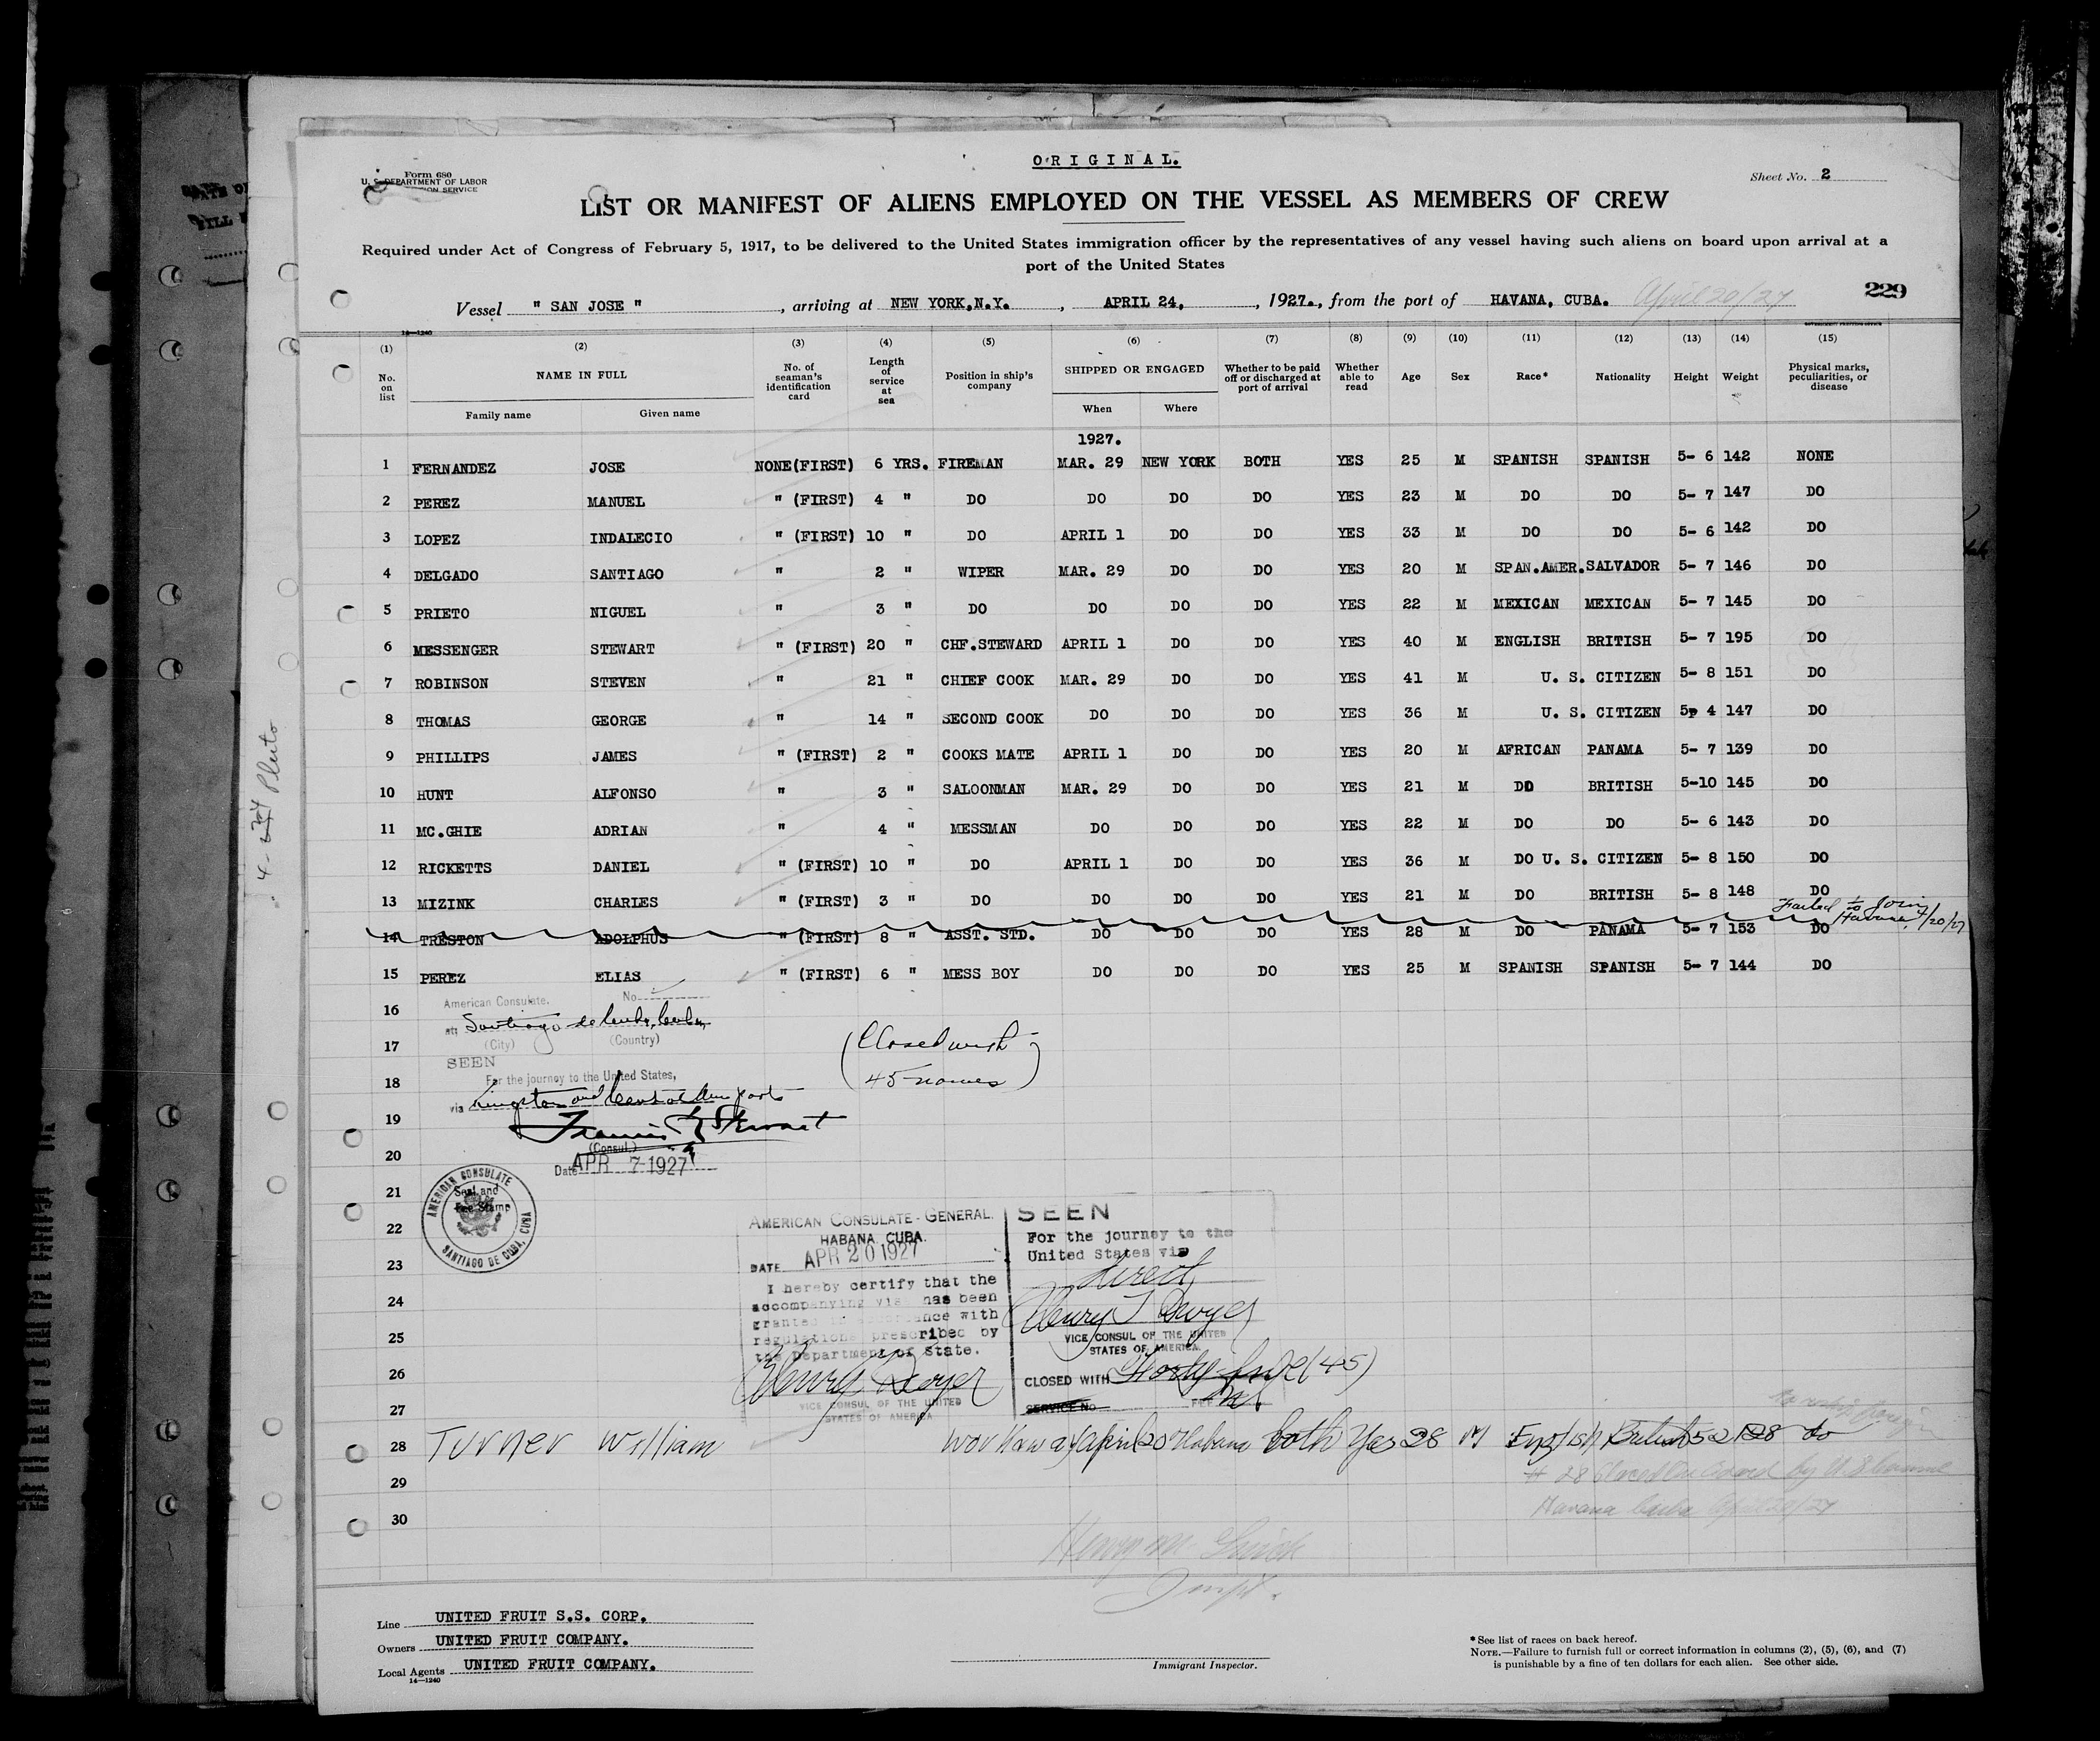 ORIGINAL.
Form 680
U. S. DEPARTMENT OF LABOR
SERVICE
Sheet No. 2
LIST OR MANIFEST OF ALIENS EMPLOYED ON THE VESSEL AS MEMBERS OF CREW
Required under Act of Congress of February 5, 1917, to be delivered to the United States immigration officer by the representatives of any vessel having such aliens on board upon arrival at a
port of the United States
229
Vessel " SAN JOSE " , arriving at NEW YORK,N.Y. , APRIL 24, , 1927., from the port of HAVANA, CUBA. April 20/27
(1) (2) (3) (4) (5) (6) (7) (8) (9) (10) (11) (12) (13) (14) (15)
No. on list NAME IN FULL No. of seaman's identification card Length of service at sea Position in ship's company SHIPPED OR ENGAGED Whether to be paid off or discharged at port of arrival Whether able to read Age Sex Race* Nationality Height Weight Physical marks, peculiarities, or disease
Family name Given name When Where
1927.
1 FERNANDEZ JOSE NONE(FIRST) 6 YRS. FIREMAN MAR. 29 NEW YORK BOTH YES 25 M SPANISH SPANISH 5- 6 142 NONE
2 PEREZ MANUEL " (FIRST) 4 " DO DO DO DO YES 23 M DO DO 5- 7 147 DO
3 LOPEZ INDALECIO " (FIRST) 10 " DO APRIL 1 DO DO YES 33 M DO DO 5- 6 142 DO
4 DELGADO SANTIAGO " 2 " WIPER MAR. 29 DO DO YES 20 M SPAN.AMER. SALVADOR 5- 7 146 DO
5 PRIETO NIGUEL " 3 " DO DO DO DO YES 22 M MEXICAN MEXICAN 5- 7 145 DO
6 MESSENGER STEWART " (FIRST) 20 " CHF.STEWARD APRIL 1 DO DO YES 40 M ENGLISH BRITISH 5- 7 195 DO
7 ROBINSON STEVEN " 21 " CHIEF COOK MAR. 29 DO DO YES 41 M U. S. CITIZEN 5- 8 151 DO
8 THOMAS GEORGE " 14 " SECOND COOK DO DO DO YES 36 M U. S. CITIZEN 5- 4 147 DO
9 PHILLIPS JAMES " (FIRST) 2 " COOKS MATE APRIL 1 DO DO YES 20 M AFRICAN PANAMA 5- 7 139 DO
10 HUNT ALFONSO " 3 " SALOONMAN MAR. 29 DO DO YES 21 M DO BRITISH 5-10 145 DO
11 MC.GHIE ADRIAN " 4 " MESSMAN DO DO DO YES 22 M DO DO 5- 6 143 DO
12 RICKETTS DANIEL " (FIRST) 10 " DO APRIL 1 DO DO YES 36 M DO U. S. CITIZEN 5- 8 150 DO
13 MIZINK CHARLES " (FIRST) 3 " DO DO DO DO YES 21 M DO BRITISH 5- 8 148 DO
Failed to Join
Havana 4/20/27
14 TRESTON ADOLPHUS " (FIRST) 8 " ASST. STD. DO DO DO YES 28 M DO PANAMA 5- 7 153 DO
15 PEREZ ELIAS " (FIRST) 6 " MESS BOY DO DO DO YES 25 M SPANISH SPANISH 5- 7 144 DO
American Consulate. No
16
at Santiago de Cuba, Cuba
(City) (Country)
17 (Closed with
SEEN
For the journey to the United States,
18 45 names)
via Kingston and Central Am ports
19
Francis R Stewart
(Consul.)
20
Date APR 7-1927
21
AMERICAN CONSULATE
Seal and
Fee Stamp
SANTIAGO DE CUBA, CUBA
22
AMERICAN CONSULATE-GENERAL.
HABANA, CUBA.
DATE APR 20 1927
I hereby certify that the
accompanying visa has been
granted in accordance with
regulations prescribed by
the Department of State.
Henry T Dwyer
VICE CONSUL OF THE UNITED
STATES OF AMERICA
SEEN
For the journey to the
United States via
direct
Henry T Dwyer
VICE CONSUL OF THE UNITED
STATES OF AMERICA
CLOSED WITH Forty-five (45)
SERVICE No.
23
24
25
26
27
28 Turner William Workaway April 20 Habana both Yes 28 M English British 5 2 128 do
# 28 Placed on board by U S Consul
29
Havana Cuba April 20/27
30
Henry M
Inspt.
4-24 Pluto
Line UNITED FRUIT S.S. CORP.
Owners UNITED FRUIT COMPANY.
Local Agents UNITED FRUIT COMPANY.
14—1240
Immigrant Inspector.
*See list of races on back hereof.
NOTE.—Failure to furnish full or correct information in columns (2), (5), (6), and (7)
is punishable by a fine of ten dollars for each alien. See other side.